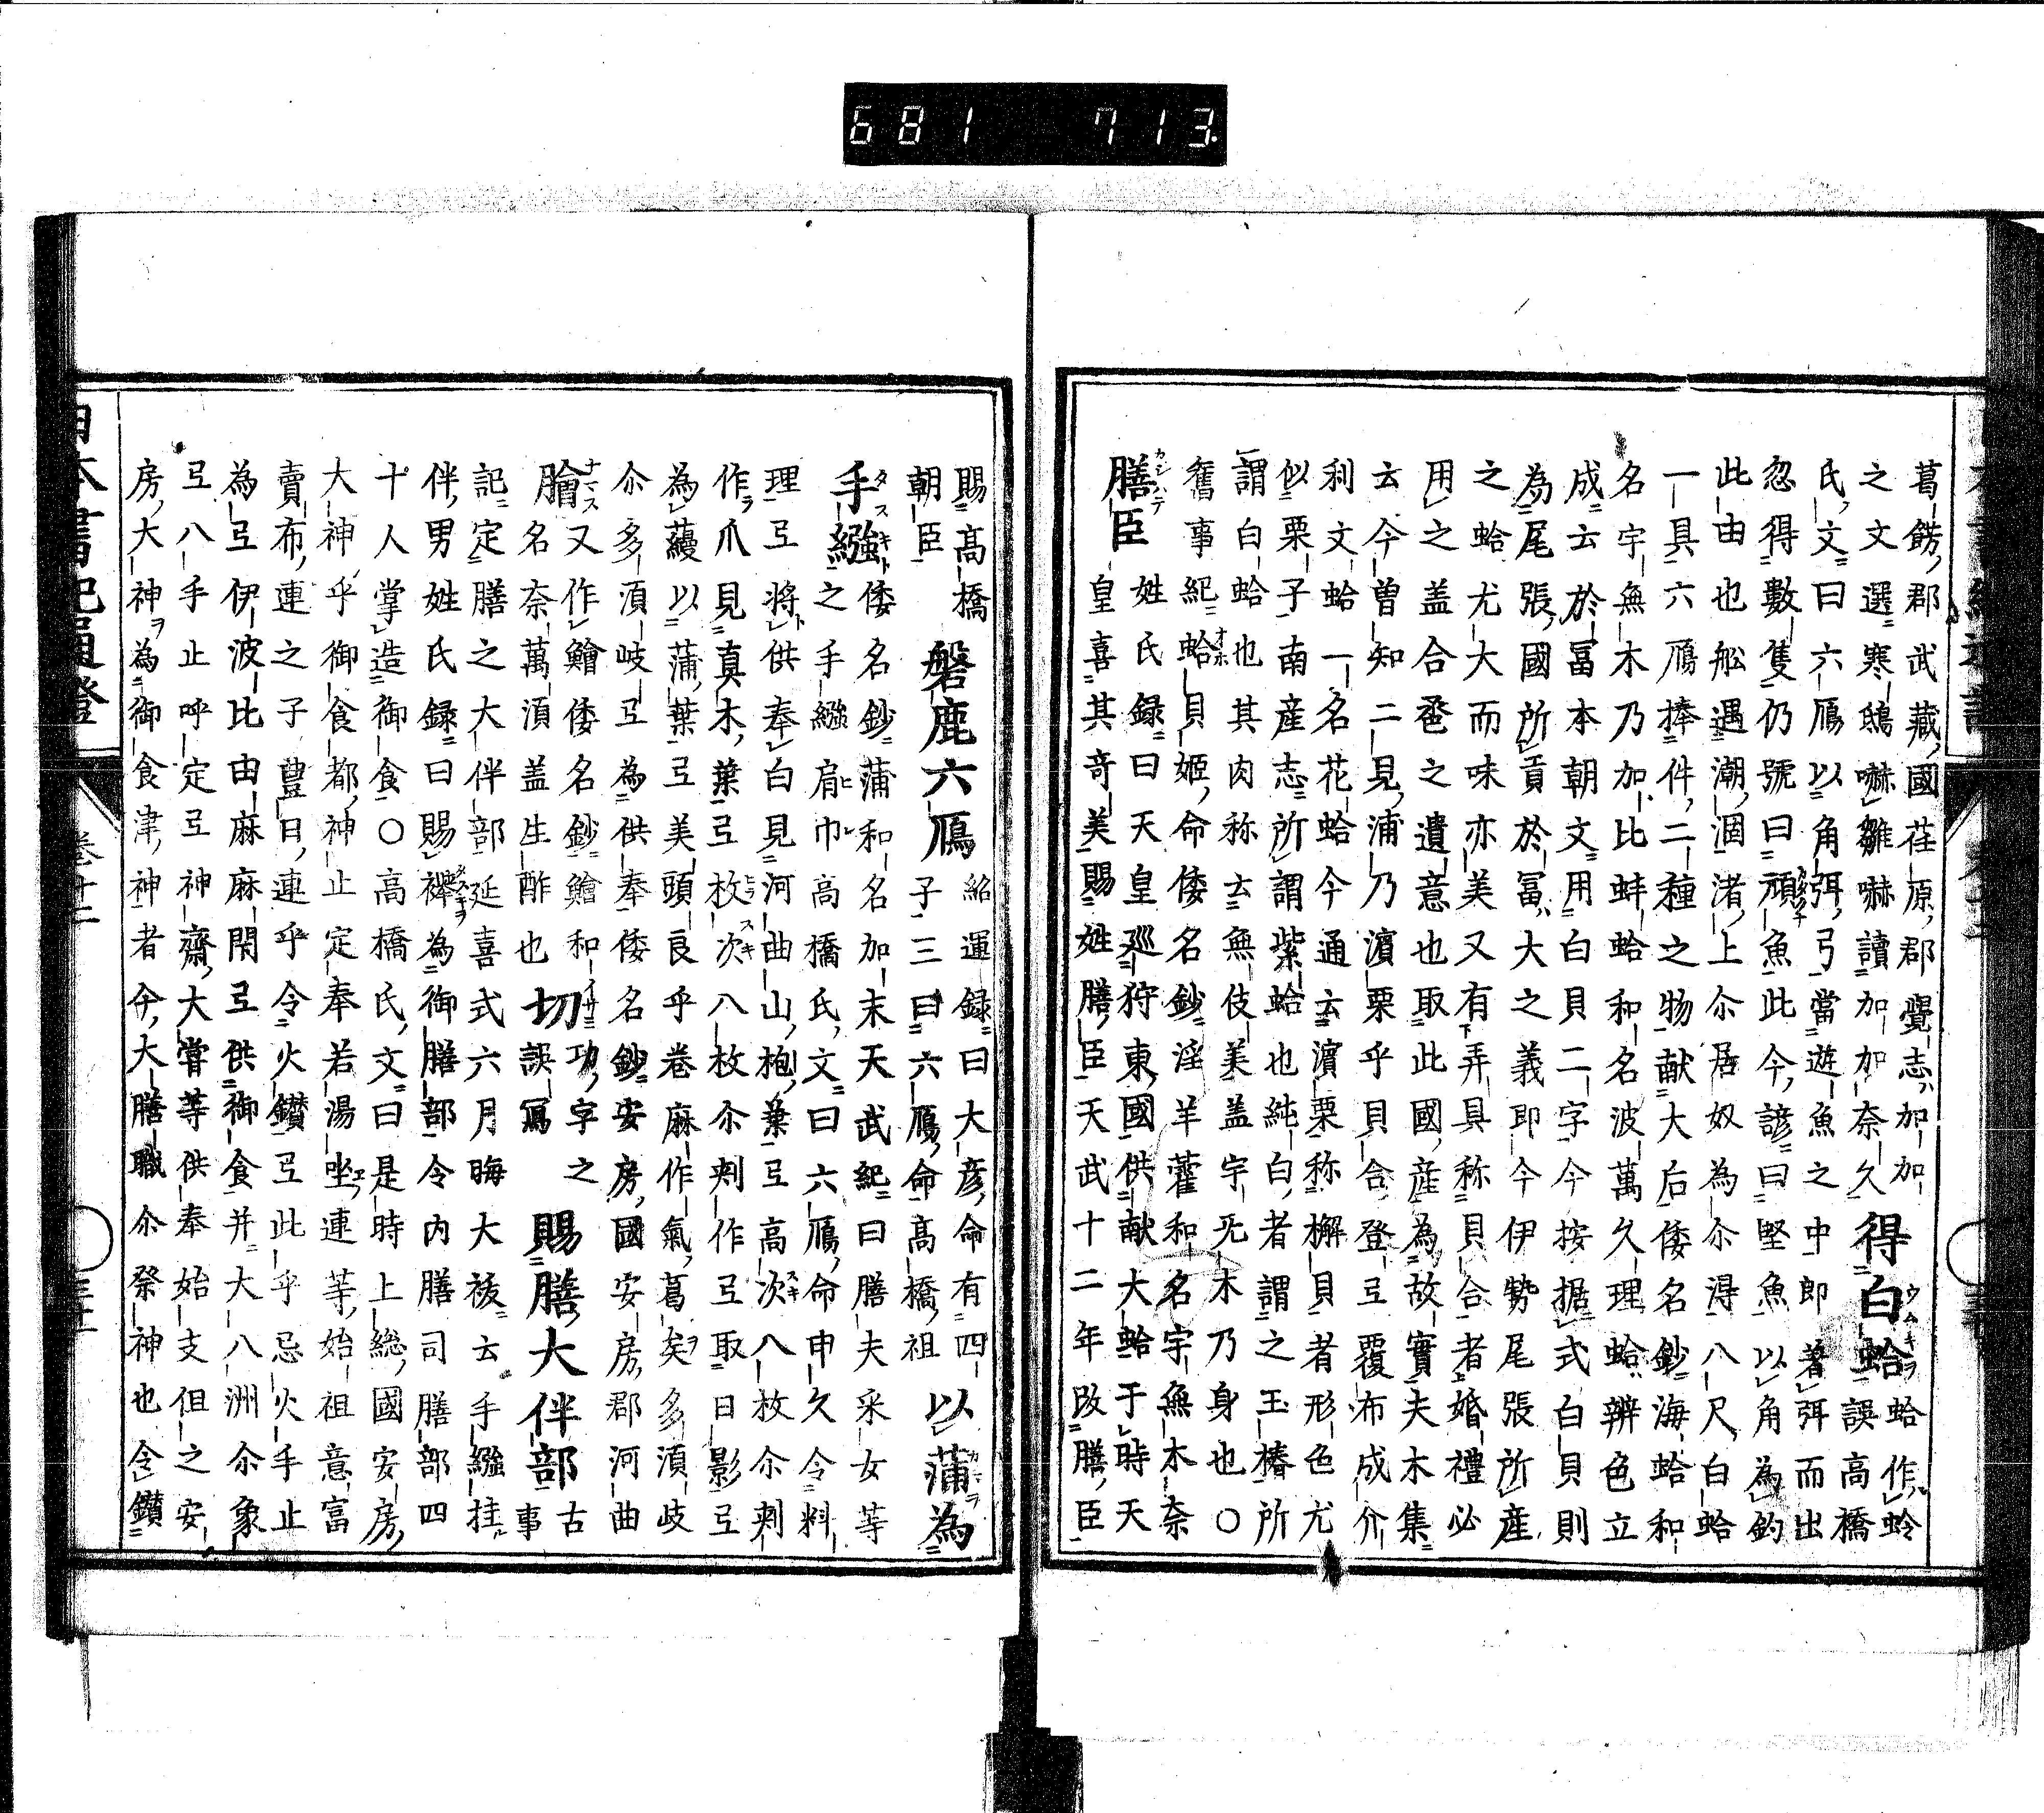 681 713
葛餝郡武藏國荏原郡覺志加加
之文選寒鴟嚇雛嚇讀加加奈久 得白蛤 ウムキヲ 蛤作蛉誤高橋
氏文曰六鴈以角弭弓當遊魚之中即著弭而出
忽得數隻仍號曰頑魚此今諺曰堅魚以角為釣
此由也舩遇潮涸渚上尒居奴為尒淂八尺白蛤
一具六鴈捧件二種之物献大后倭名鈔海蛤和
名宇無木乃加比蚌蛤和名波萬久理蛤辨色立
成云於冨本朝文用白貝二字今按据式白貝則
為尾張國所貢於冨大之義耶今伊勢尾張所産
之蛤尤大而味亦美又有弄具称貝合者婚禮必
用之盖合卺之遺意也取此國産為故實夫木集
云今曽知二見浦乃濵栗乎貝合登弖覆布成介
利文蛤一名花蛤今通云濵栗称懈貝者形色尤
似栗子南産志所謂紫蛤也純白者謂之玉椿所
謂白蛤也其肉称云無伎美盖宇旡木乃身也〇
舊事紀蛤貝姬命倭名鈔淫羊藿和名宇無木奈
膳臣 カシハテ 姓氏録曰天皇巡狩東國供献大蛤于時天
皇喜其奇美賜姓膳臣天武十二年改膳臣
賜髙橋朝臣 磐鹿六鴈 紹運録曰大彦命有四子三曰六鴈命髙橋祖 以蒲為
手繦 タスキト 倭名鈔蒲和名加末天武紀曰膳夫采女等
之手繦肩巾高橋氏文曰六鴈命申久令料
理弖将供奉白見河曲山枹葉弖高次八枚尒刾
作爪見真木葉弖枚次八枚尒刾作弖取日影弖
為蘰以蒲葉弖美頭良乎巻麻作氣葛矣多湏岐
尒多湏岐弖為供奉倭名鈔安房國安房郡河曲
膾 ナマス 又作鱠倭名鈔鱠和名奈萬湏盖生酢也 切 イサミ 功字之誤冩 賜膳大伴部 古事
記定膳之大伴部延喜式六月晦大祓云手繦挂
伴男姓氏録曰賜襷為御膳部令内膳司膳部四
十人掌造御食〇高橋氏文曰是時上総國安房
大神乎御食都神止定奉若湯坐連等始祖意富
賣布連之子豊日連乎令火鑚弖此乎忌火手止
為弖伊波比由麻麻閇弖供御食并大八洲尒象
弖八手止呼定弖神齋大甞等供奉始支但之安
房大神為御食津神者今大膳職尒祭神也令鑚
日本書紀通證
巻十二